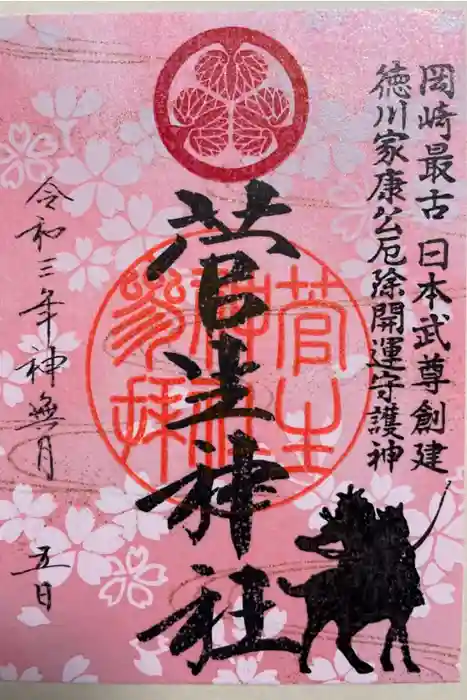 岡崎最古 日本武尊創建
徳川家康公厄除開運守護神
菅生神社
菅生神社参拝
令和三年神無月 五日